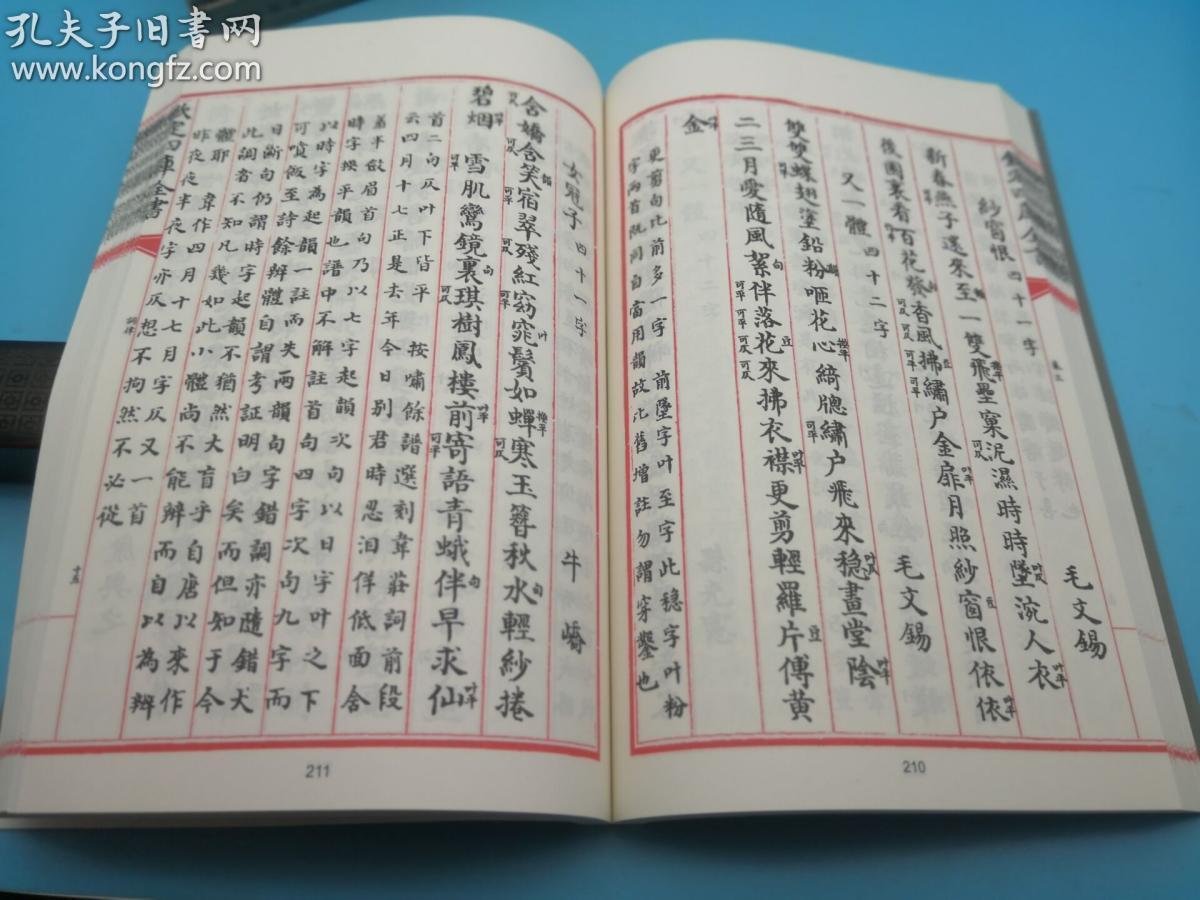 孔夫子旧书网
www.kongfz.com
紗窗恨 四十一字 毛文錫
新春燕子還來至一雙飛壘巢泥濕時時墜涴人衣
後園裏看百花發香風拂繡户金扉月照紗窗恨依依
又一體 四十二字 毛文錫
雙雙蝶翅塗鉛粉咂花心綺牕繡户飛來稳畫堂陰
二三月愛隨風絮伴落花來拂衣襟更剪輕羅片傅黄
金
更剪句比前多一字 前墜字叶至字此稳字叶粉
字两首既同自當用韻故比舊增註勿謂穿鑿也
210
女冠子 四十一字 牛嶠
含嬌含笑宿翠殘紅窈窕鬢如蟬寒玉簪秋水輕紗捲
碧烟 雪肌鸞鏡裏琪樹鳳樓前寄語青蛾伴早求仙
首二句仄叶下皆平 按嘯餘譜選刻韋莊詞前段
云四月十七正是去年今日别君時忍泪佯低面含
羞半斂眉首句乃以七字起韻次句以日字叶之下
時字換平韻也譜中不解註首句四字次句九字而
以時字為起韻一註而失两韻句字錯調亦隨錯犬
可噴飯至詩餘辨體自謂考証明白矣而但知于今
日斷句仍謂時字起韻不猶然大盲乎自唐以來作
此調者不知凡幾如此小體尚不能辨而自以為辨
體耶 韋作四月十七月字仄又一首
昨夜夜半夜字亦仄想不拘然不必從
欽定四庫全書
詞律
十五
211